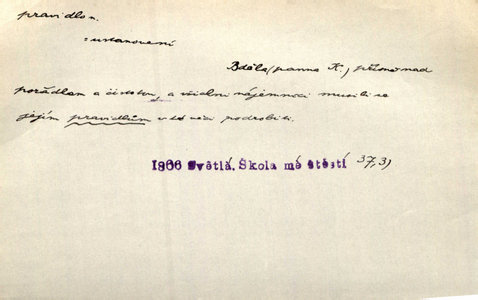 pravidlo n.
= ustanovení
Bděla (panna K.) přísně nad
pořádkem a čistotou, a všickni nájemníci musili se
jejím pravidlům v té věci podrobiti.
1866 Světlá. Škola mé štěstí 37,3)